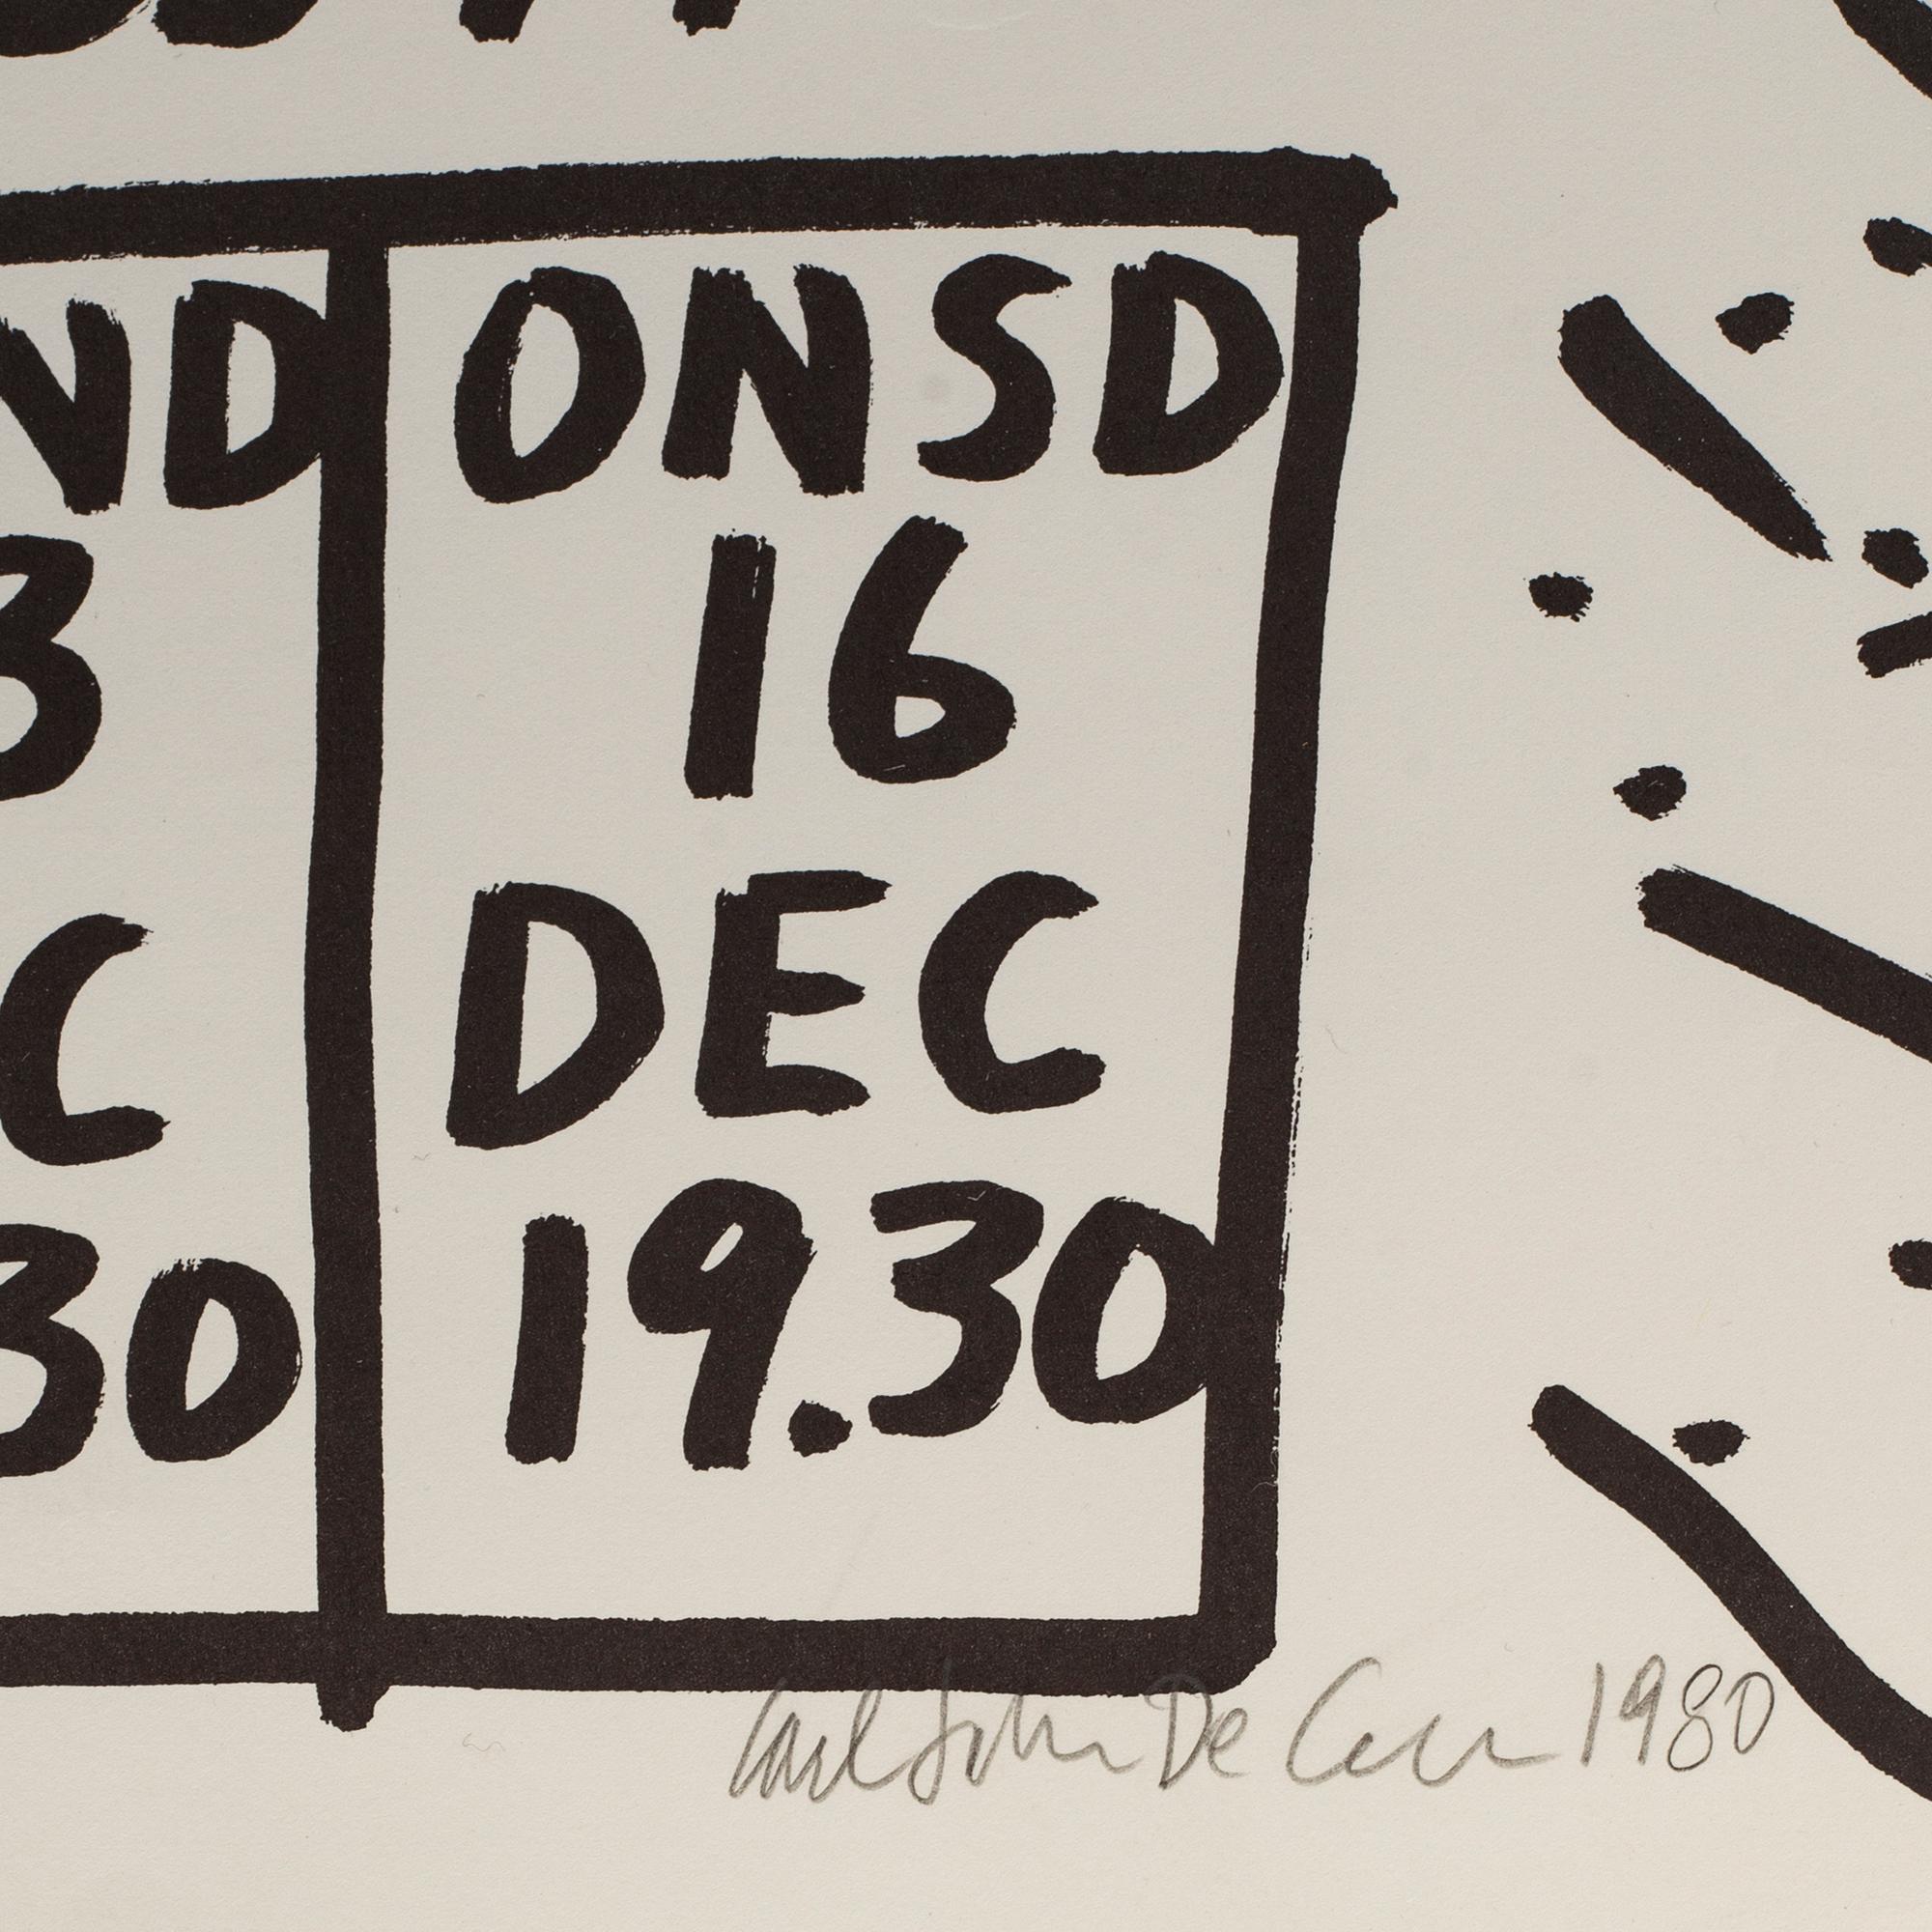 ND ONSD
3 16
C DEC
30 19.30
Carl Johan De Geer 1980